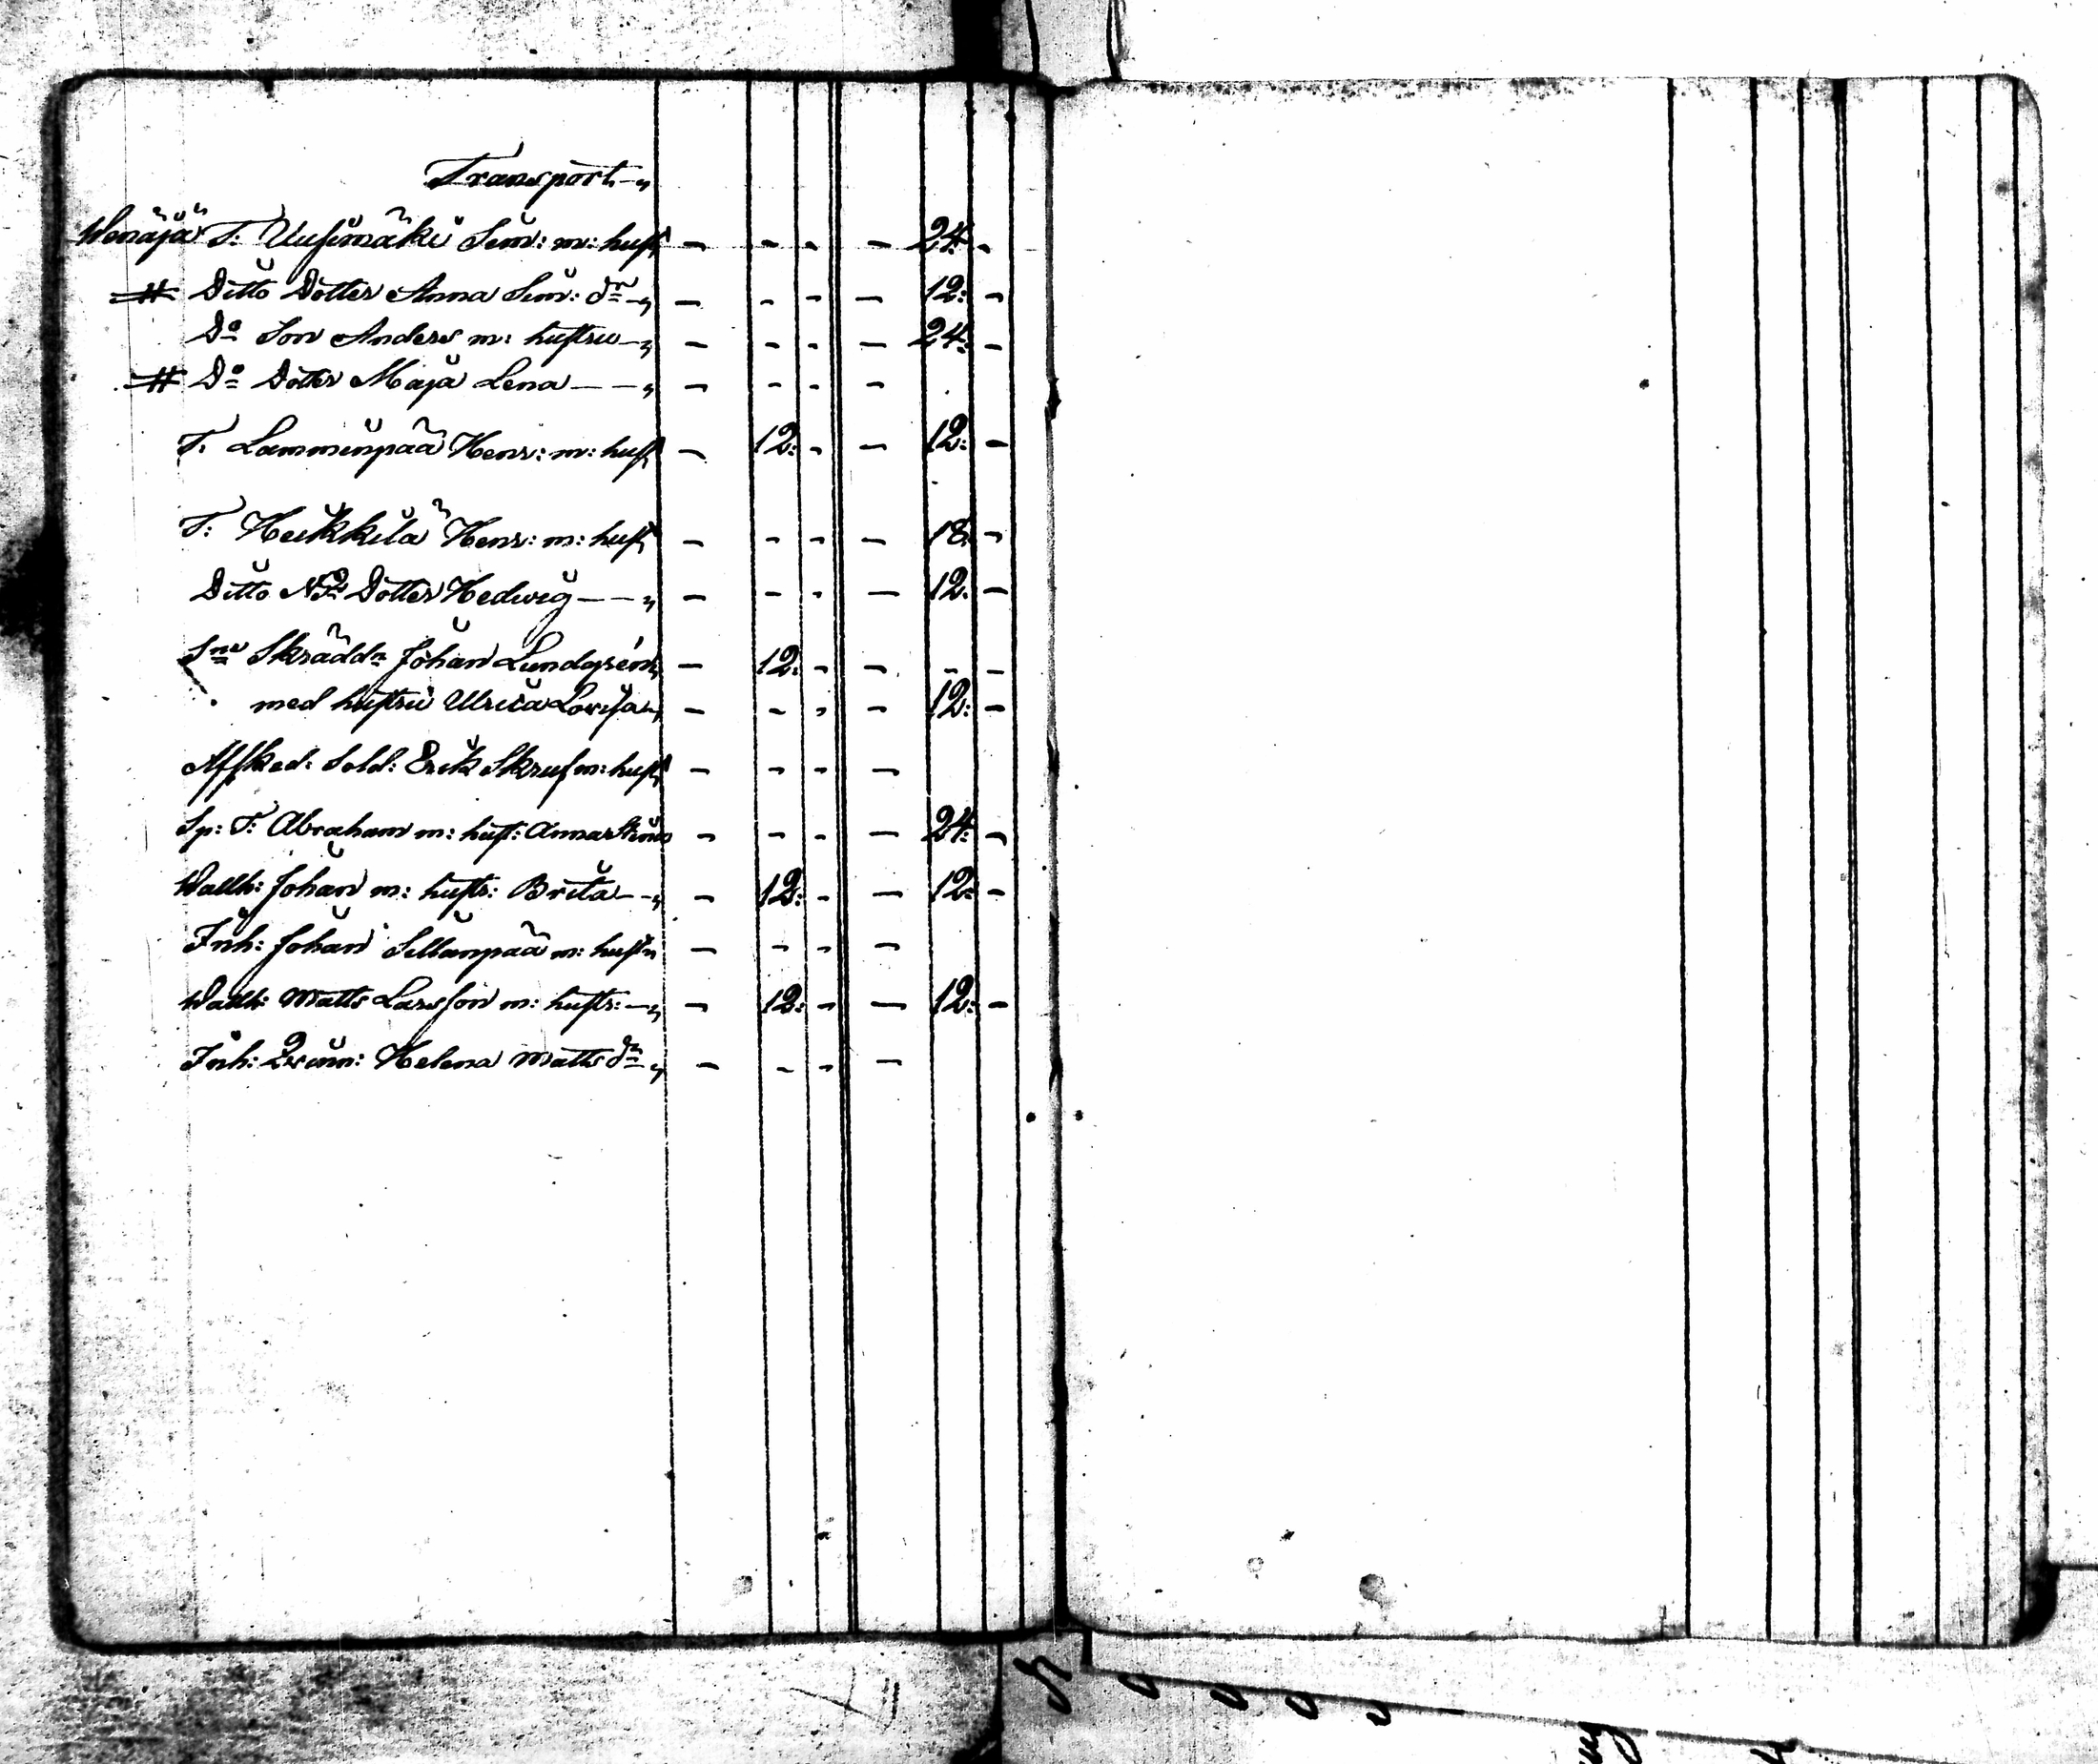 Transport „
Wenäjä T: Uusimäki Sim: m: hust - - - - 24. -
# Ditto Dotter Anna Sim: dr „ - - - - 12: -
Do Son Anders m: hustru „ - - - - 24: -
# Do Dotter Maja Lena — — „ - - - -
T. Lamminpää Henr: m: hust - 12: - - 12: -
T: Heikkilä Henr: m: hust - - - - 18. -
Ditto Dotter Hedwig — — „ - - - - 12. -
Skräddr Johan Lundgren - 12: - - - -
med hustru Ulrica Lovisa „ - - - - 12: -
Affsked: Sold: Erik Skruf m: hust - - - -
Sp: T: Abraham m: hust: Anna - - - - 24: -
Wallh: Johan m: hustr: Brita — „ - 12: - - 12: -
Inh: Johan Sillanpää m: hustr - - - -
Wallh: Matts Larsson m: hustr: — „ - 12: - - 12: -
Inh: Qvinn: Helena Matts dr „ - - - -